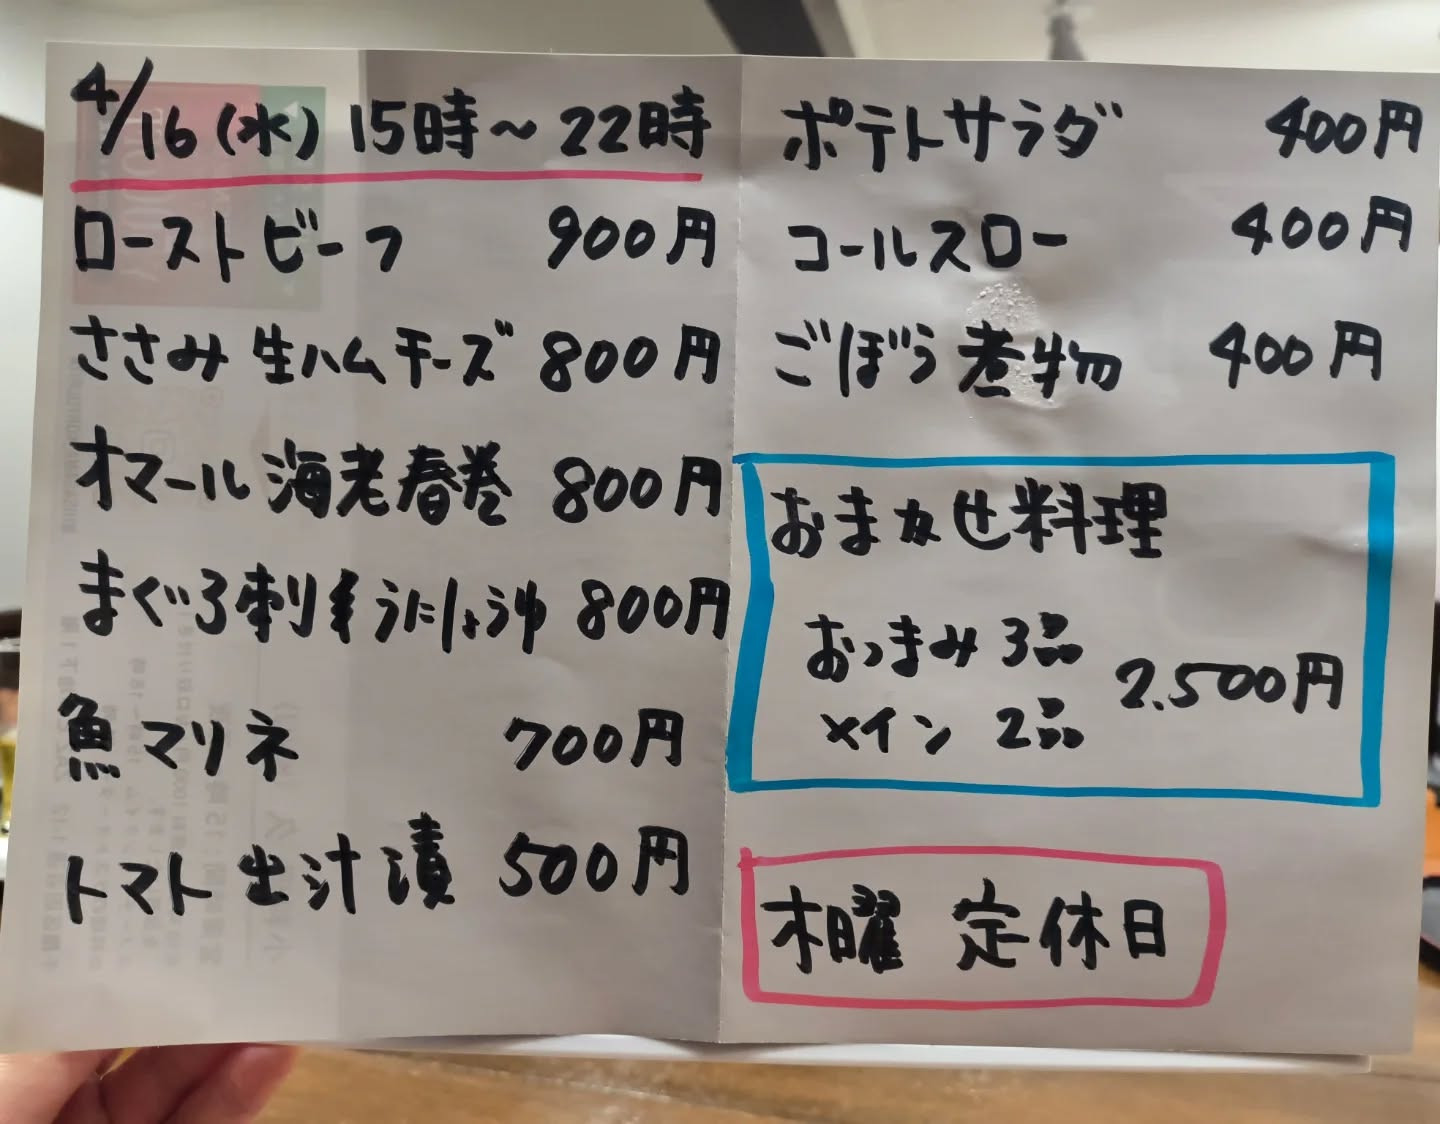 4/16(水) 15時〜22時
ローストビーフ 900円
ささみ 生ハムチーズ 800円
オマール海老春巻 800円
まぐろ刺 うにしょうゆ 800円
魚マリネ 700円
トマト出汁漬 500円
ポテトサラダ 400円
コールスロー 400円
ごぼう煮物 400円
おまかせ料理
おつまみ 3品
メイン 2品
2.500円
木曜 定休日